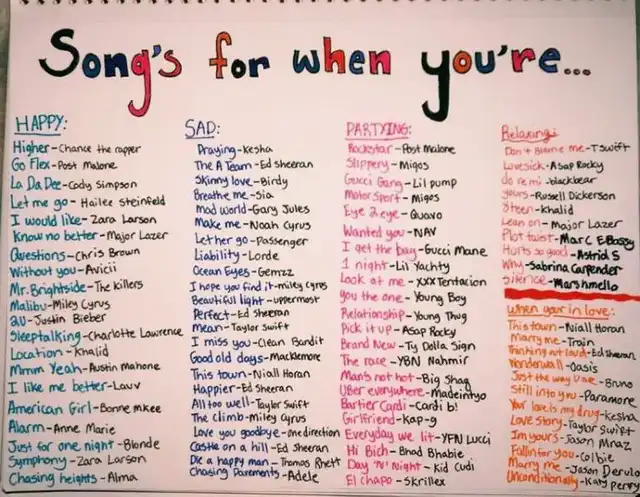 Song's for when you're...
HAPPY:
Higher-Chance the rapper
Go Flex-Post Malone
La Da Dee-Cody Simpson
Let me go-Hailee Steinfeld
I would like-Zara Larson
Know no better-Major Lazer
Questions-Chris Brown
Without you-Avicii
Mr. Brightside-The killers
Malibu-Miley Cyrus
2U-Justin Bieber
Sleeptalking-Charlotte Lawrence
Location-Khalid
Mmm Yeah-Austin Mahone
I like me better-Lauv
American Girl-Bonne mkee
Alarm-Anne Marie
Just for one night-Blonde
Symphony-Zara Larson
Chasing heights-Alma
SAD:
Praying-Kesha
The A Team-Ed sheeran
Skinny love-Birdy
Breathe me-Sia
mad world-Gary Jules
Make me-Noah Cyrus
Let her go-Passenger
Liability-Lorde
Ocean Eyes-Gemzz
I hope you find it-miley Cyrus
Beautiful light-uppermost
Perfect-Ed Sheeran
Mean-Taylor Swift
I miss you-Clean Bandit
Good old days-Macklemore
This town-Niall Horan
Happier-Ed Sheeran
All too well-Taylor Swift
The climb-miley Cyrus
Love you goodbye-one direction
Castle on a hill-Ed sheeran
Die a happy man-Thomas Rhett
Chasing Pavements-Adele
PARTYING:
Rockstar-Post Malone
Slippery-Migos
Gucci Gang-Lil pump
Motorsport-Migos
Eye 2 eye-Quavo
Wanted you-NAV
I get the bag-Gucci Mane
1 night-Lil Yachty
Look at me-XXXTentacion
you the one-Young Boy
Relationship-Young Thug
Pick it up-Asap Rocky
Brand New-Ty Dolla $ign
The race-YBN Nahmir
Man's not hot-Big Shaq
Uber everywhere-Madeintyo
Bartier Cardi-Cardi b!
Girlfriend-Kap-g
Everyday we lit-YFN Lucci
Hi Bich-Bhad Bhabie
Day 'N' night-Kid Cudi
El chapo-Skrillex
Relaxing:
Don't Blame me-TSwift
Lovesick-Asap Rocky
do re mi-blackbear
yours-Russell Dickerson
8teen-Khalid
Lean on-Major Lazer
Plot twist-Marc E. Bassy
Hurts so good-Astrid S
Why-Sabrina Carpender
Silence-Marshmello
When your in love:
This town-Niall Horan
Marry me-Train
Thinking out loud-Ed sheeran
Wonderwall-Oasis
Just the way U are-Bruno
Still into you-Paramore
Your love is my drug-Kesha
Love story-Taylor Swift
Im yours-Jason Mraz
Fallin for you-Colbie
Marry me-Jason Derulo
Unconditionally-Katy perry